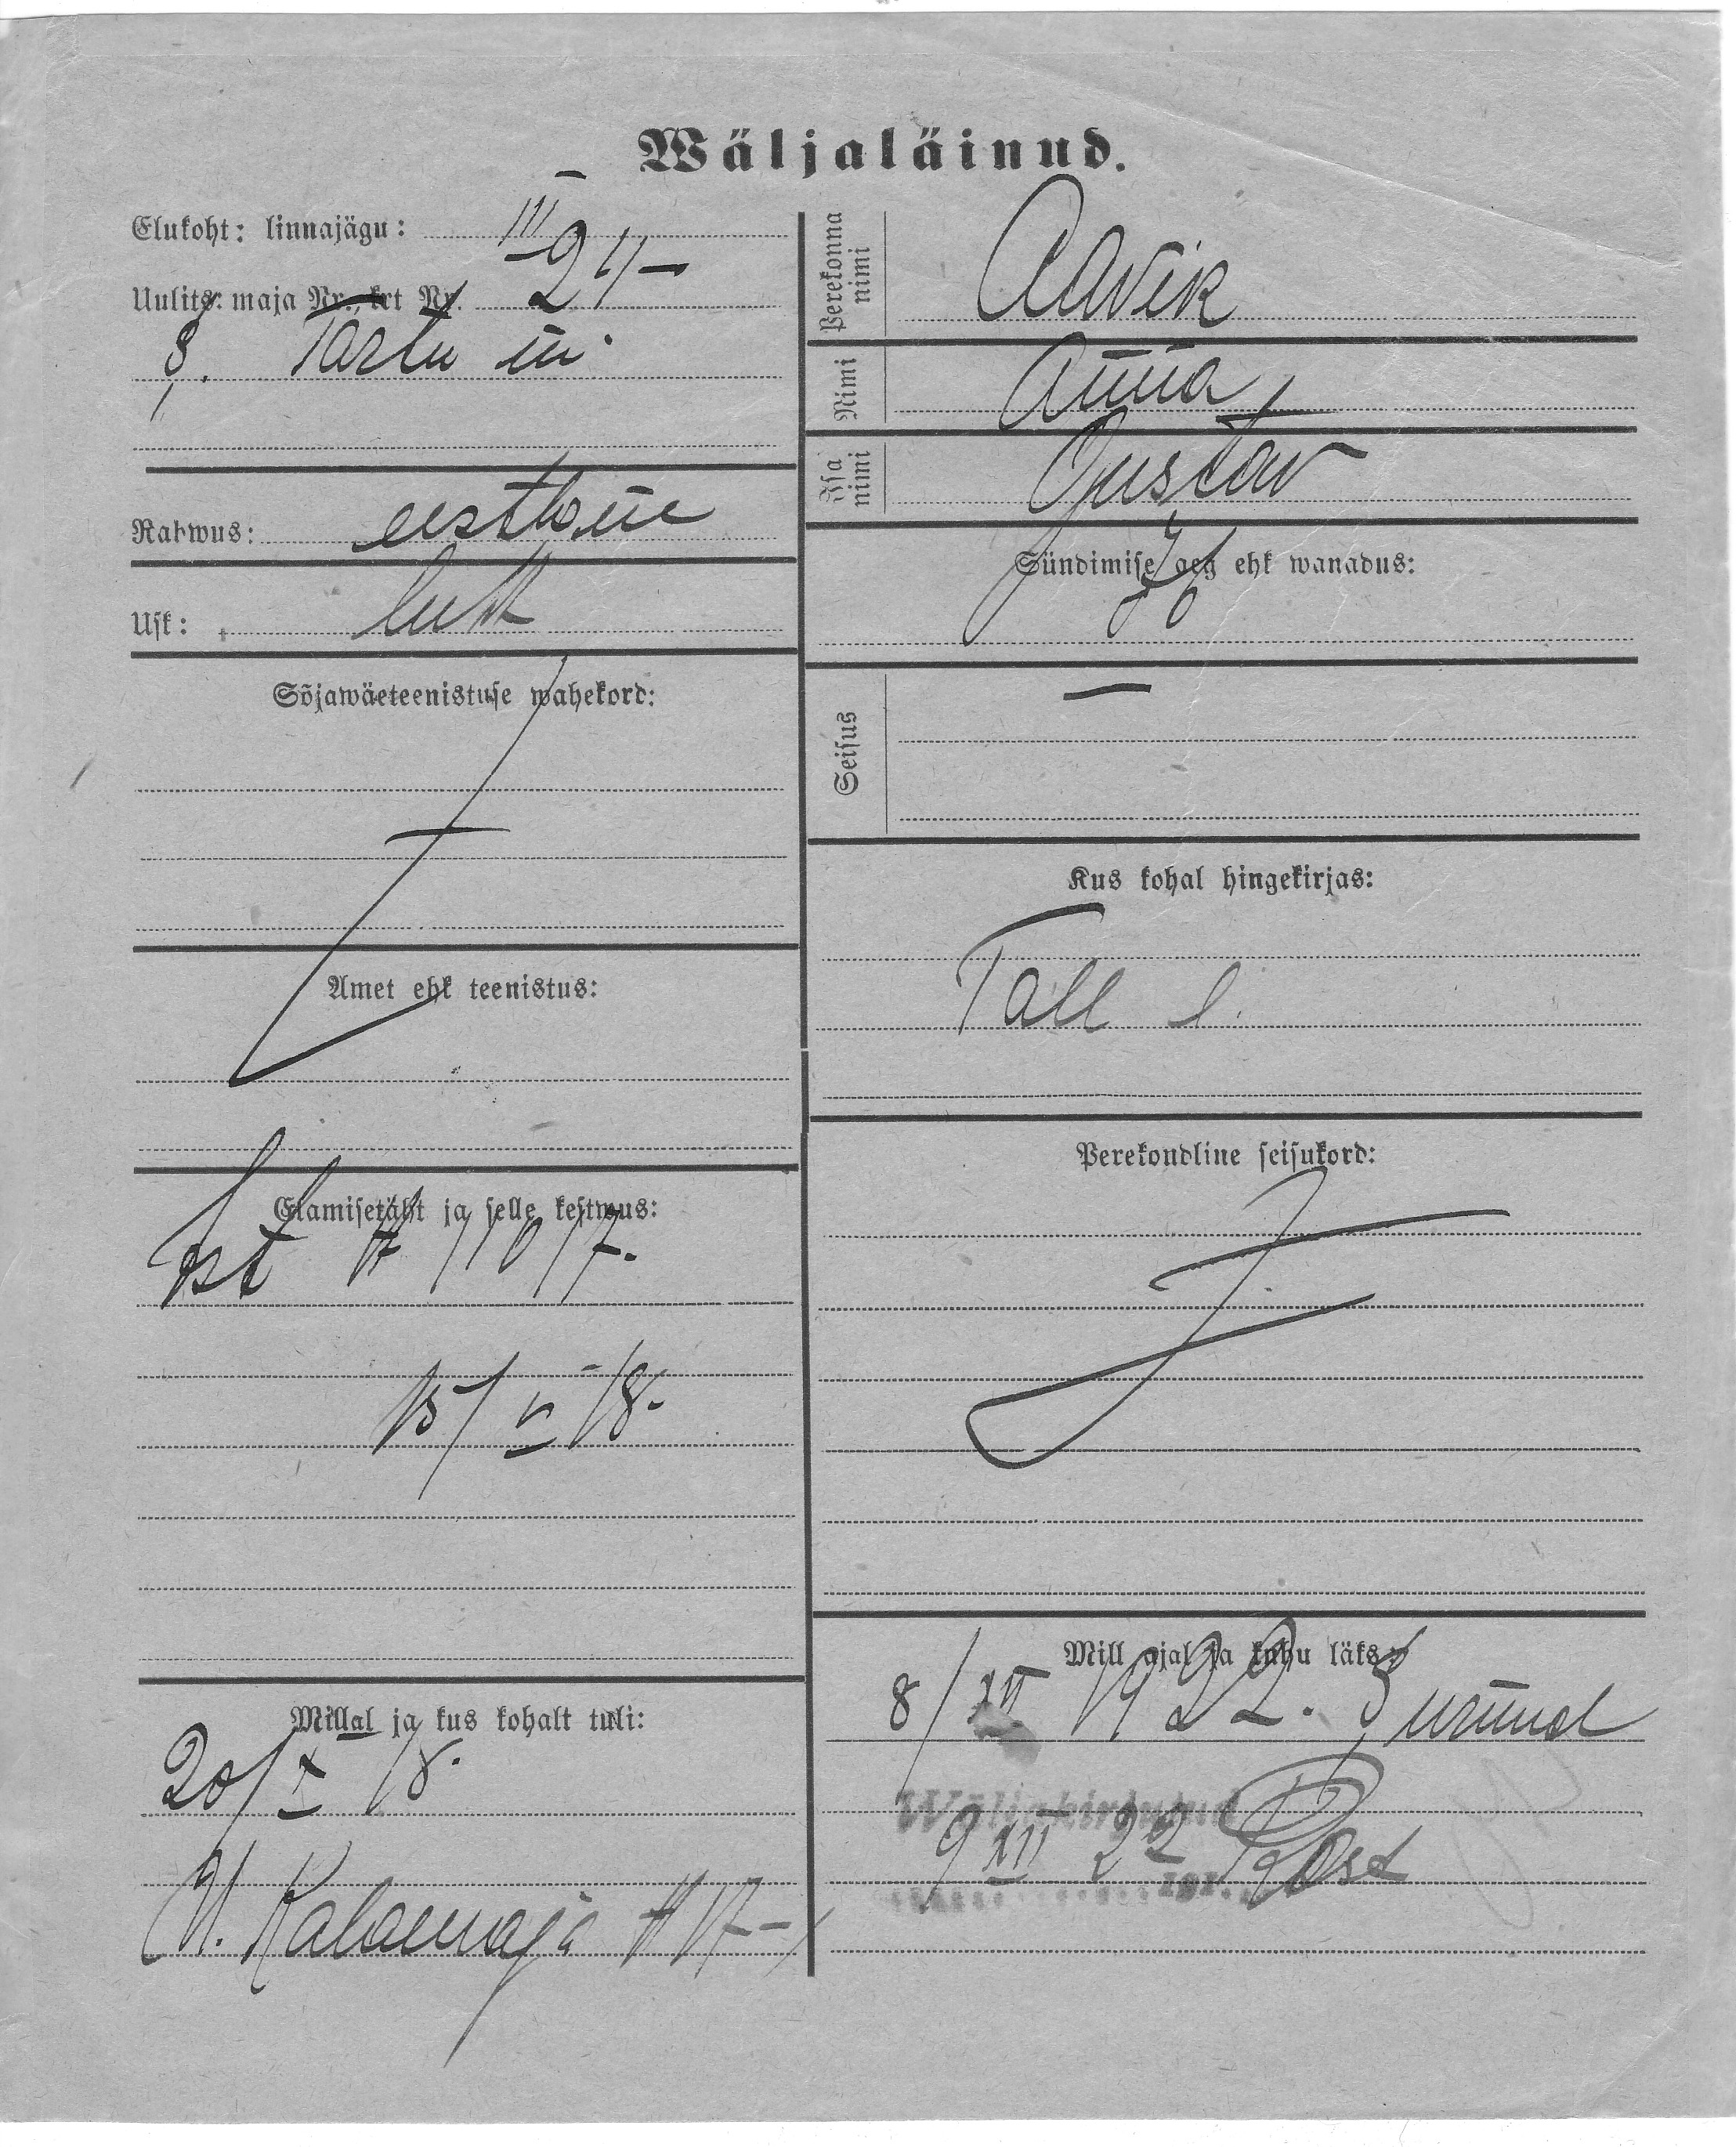 Wäljaläinud.
Elukoht: linnajägu: III
Uulits: maja Nr., krt Nr. 29
S. Tartu m.
Rahwus: eestlane
Usk: lutt
Sõjawäeteenistuse wahekord:
Amet ehk teenistus:
Elamisetäht ja selle kestwus:
15/V 18.
Millal ja kus kohalt tuli:
20/X 18.
W. Kalamaja 17-
Perekonna nimi Aavik
Nimi Anna,
Isa nimi Gustav
Sündimise aeg ehk wanadus:
76
Seisus —
Kus kohal hingekirjas:
Tall l.
Perekondline seisukord:
Mill ajal ja kuhu läks:
8/XII 1922. Surnud
Wäljakirjutud
9 XII 22
191